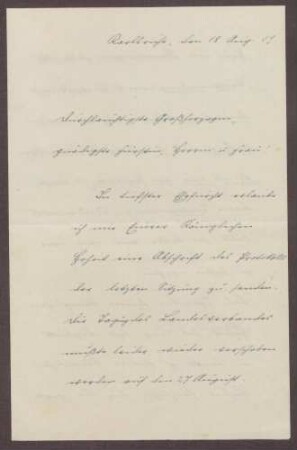 Karlsruhe, den 18 Aug 17
Durchlauchtigste Großherzogin,
gnädigste Fürstin, Herrin u Frau!
In tiefster Ehrfurcht erlaube
ich mir Eurer Königlichen
Hoheit eine Abschrift des Protokolls
der letzten Sitzung zu senden.
Die des Landesverbandes
mußte leider wieder verschoben
werden auf den 27 August.